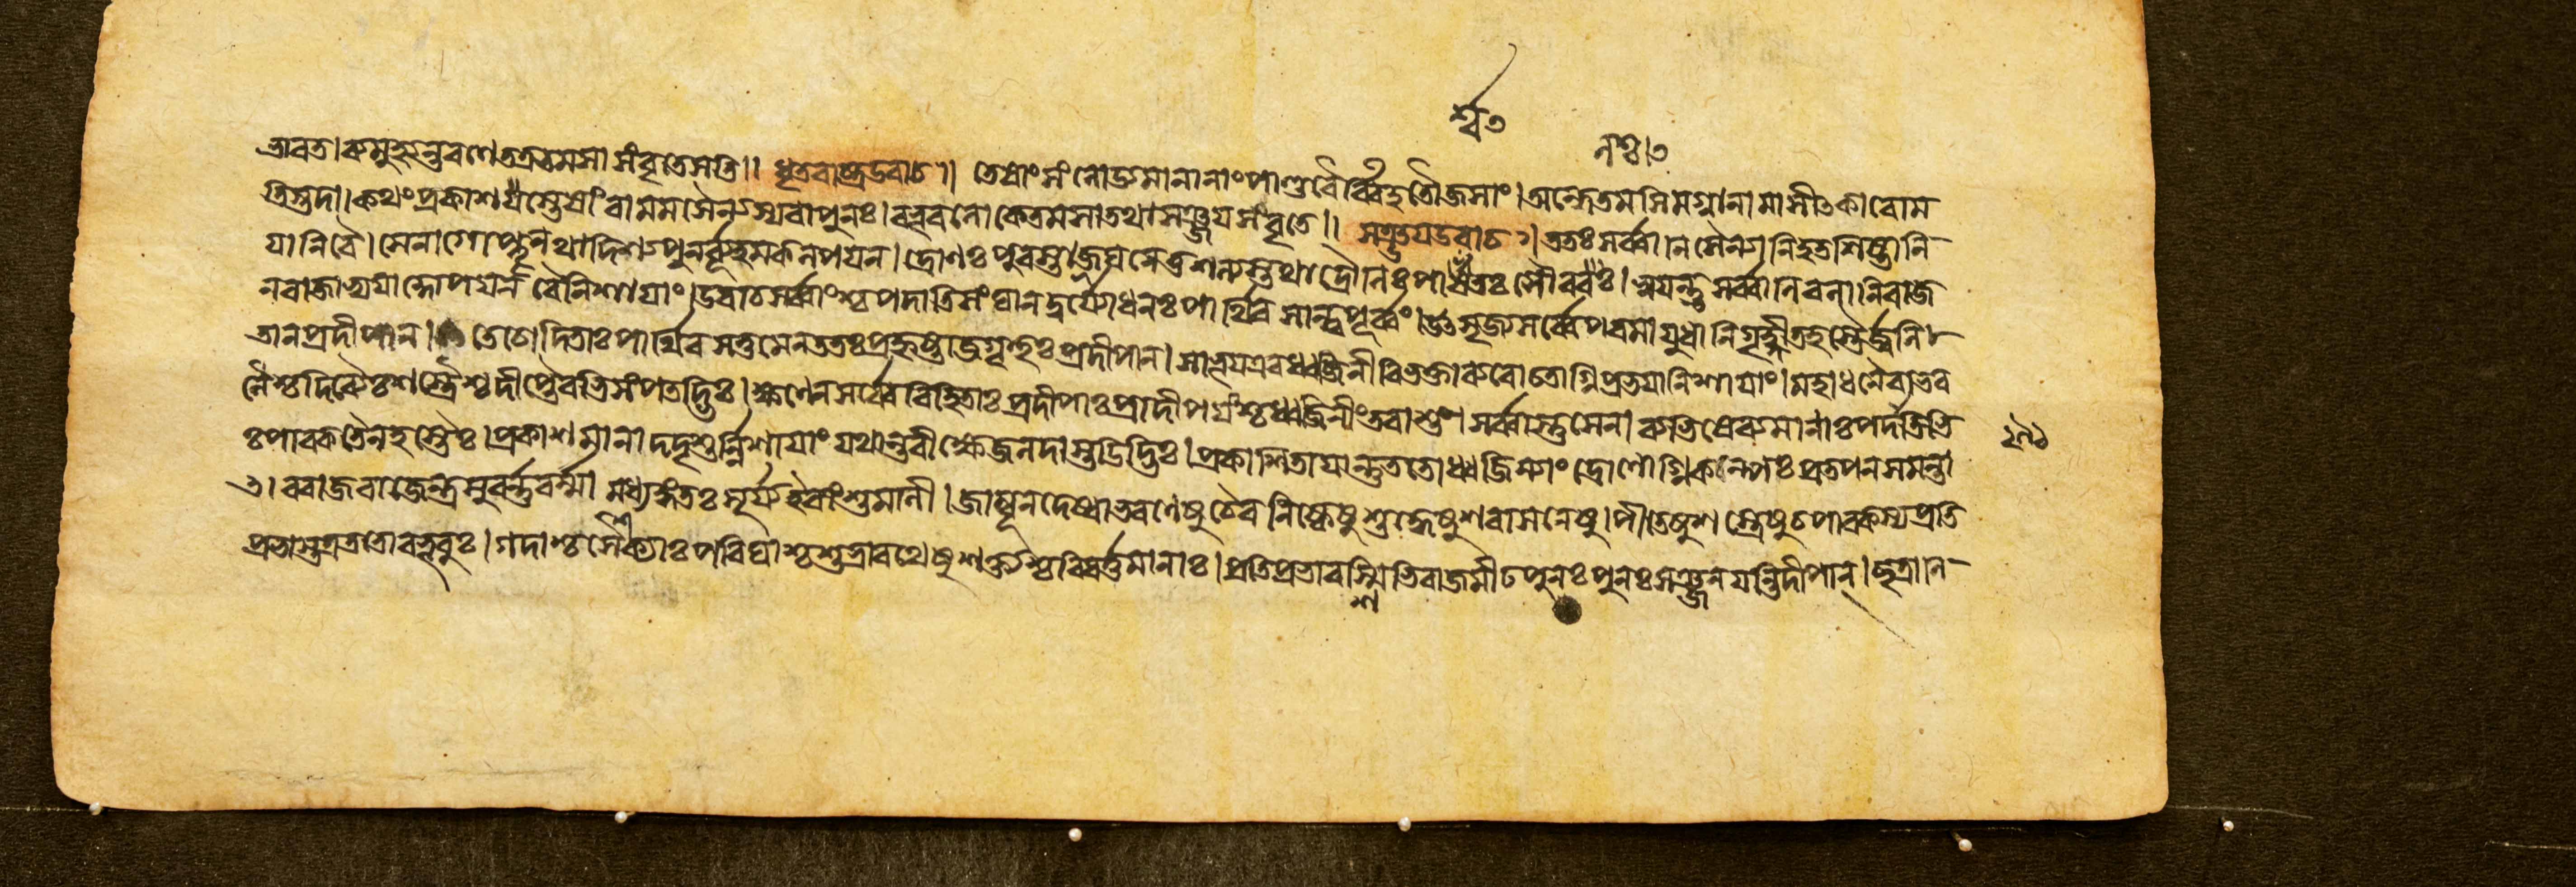 ভারত। রুমুহ্যন্তুরণে তত্রতমসা সংবৃতেসতি॥ ধৃতরাষ্ট্রউবাচ॥ তেষাংসংলোড্যমানানাংপাণ্ডবৈর্ব্বিহতৌজসাং। অন্ধেতমসিমগ্নানামাসীৎকাবোম
তিস্তদা। কথংপ্রকাশস্তেষাংবামমসৈন্যস্যবাপুনঃ। বভূবলোকেতমসাতথাসঞ্জয়সংবৃতে॥ সঞ্জয়উবাচ॥ ততঃসর্ব্বানিসৈন্যানিহতশিষ্টানি
যানিবৈ। সেনাগোপ্তৄনথাদিশ্যপুনর্ব্যূহমকল্পয়ন। দ্রোণঃপুরস্তাজ্জঘনেতুশল্যস্তথাদ্রৌনিঃপার্শ্বতঃসৌবলঃ। স্বয়ন্তুসর্ব্বানিবলানিরাজ
নরাজাভ্যয়াদ্গোপয়নবৈনিশায়াং। উবাচসর্ব্বাংশ্চপদাতিসংঘানদুর্যোধনঃপার্থিবসান্ত্বপূর্ব্বং। উৎসৃজ্যসর্ব্বেপরমায়ুধানিগৃহ্ণীতহস্তৈর্জ্বলি
তানপ্রদীপান। তেচোদিতাঃপার্থিবসত্তমেনততঃপ্রহৃষ্টাজগৃহুঃপ্রদীপান। সাভূয়এবধ্বজিনীবিভক্তাব্যরোচতাগ্নিপ্রভয়ানিশায়াং। মহাধনৈরাভর
ণৈশ্চদিব্যৈঃশস্ত্রৈশ্চদীপ্তৈরভিসংপতদ্ভিঃ। ক্ষণেনসর্ব্বেবিহিতাঃপ্রদীপাঃপ্রাদীপয়ংশ্চধ্বজিনীংতবাশু। সর্ব্বাস্তুসেনাব্যতিষেব্যমানাঃপদাতিভি
ঃপাবকতৈলহস্তৈঃ। প্রকাশমানাদদৃশুর্ন্নিশায়াংযথান্তরীক্ষেজলদাস্তডিদ্ভিঃ। প্রকাশিতায়ান্তুততোধ্বজিন্যাংদ্রোণোগ্নিকল্পঃপ্রতপনসমন্তা
ৎ। ররাজরাজেন্দ্রসুবর্ন্নবর্ম্মা মধ্যঙ্গতঃসূর্যইবাংশুমালী। জাম্বূনদেষ্বাভরণেষুচৈবনিষ্কেষুশুদ্ধেষুশরাসনেষু। পীতেষুশস্ত্রেষুচপাবকস্যপ্রতি
প্রভাস্তত্রততোবভূবুঃ। গদাশ্চশৈক্যাঃপরিঘাশ্চশুভ্রারথেষুশক্ত্যশ্চবিবর্ত্তমানাঃ। প্রতিপ্রভারশ্মিভিরাজমীঢপুনঃপুনঃসঞ্জনয়ন্তিদীপান্। ছত্রানি